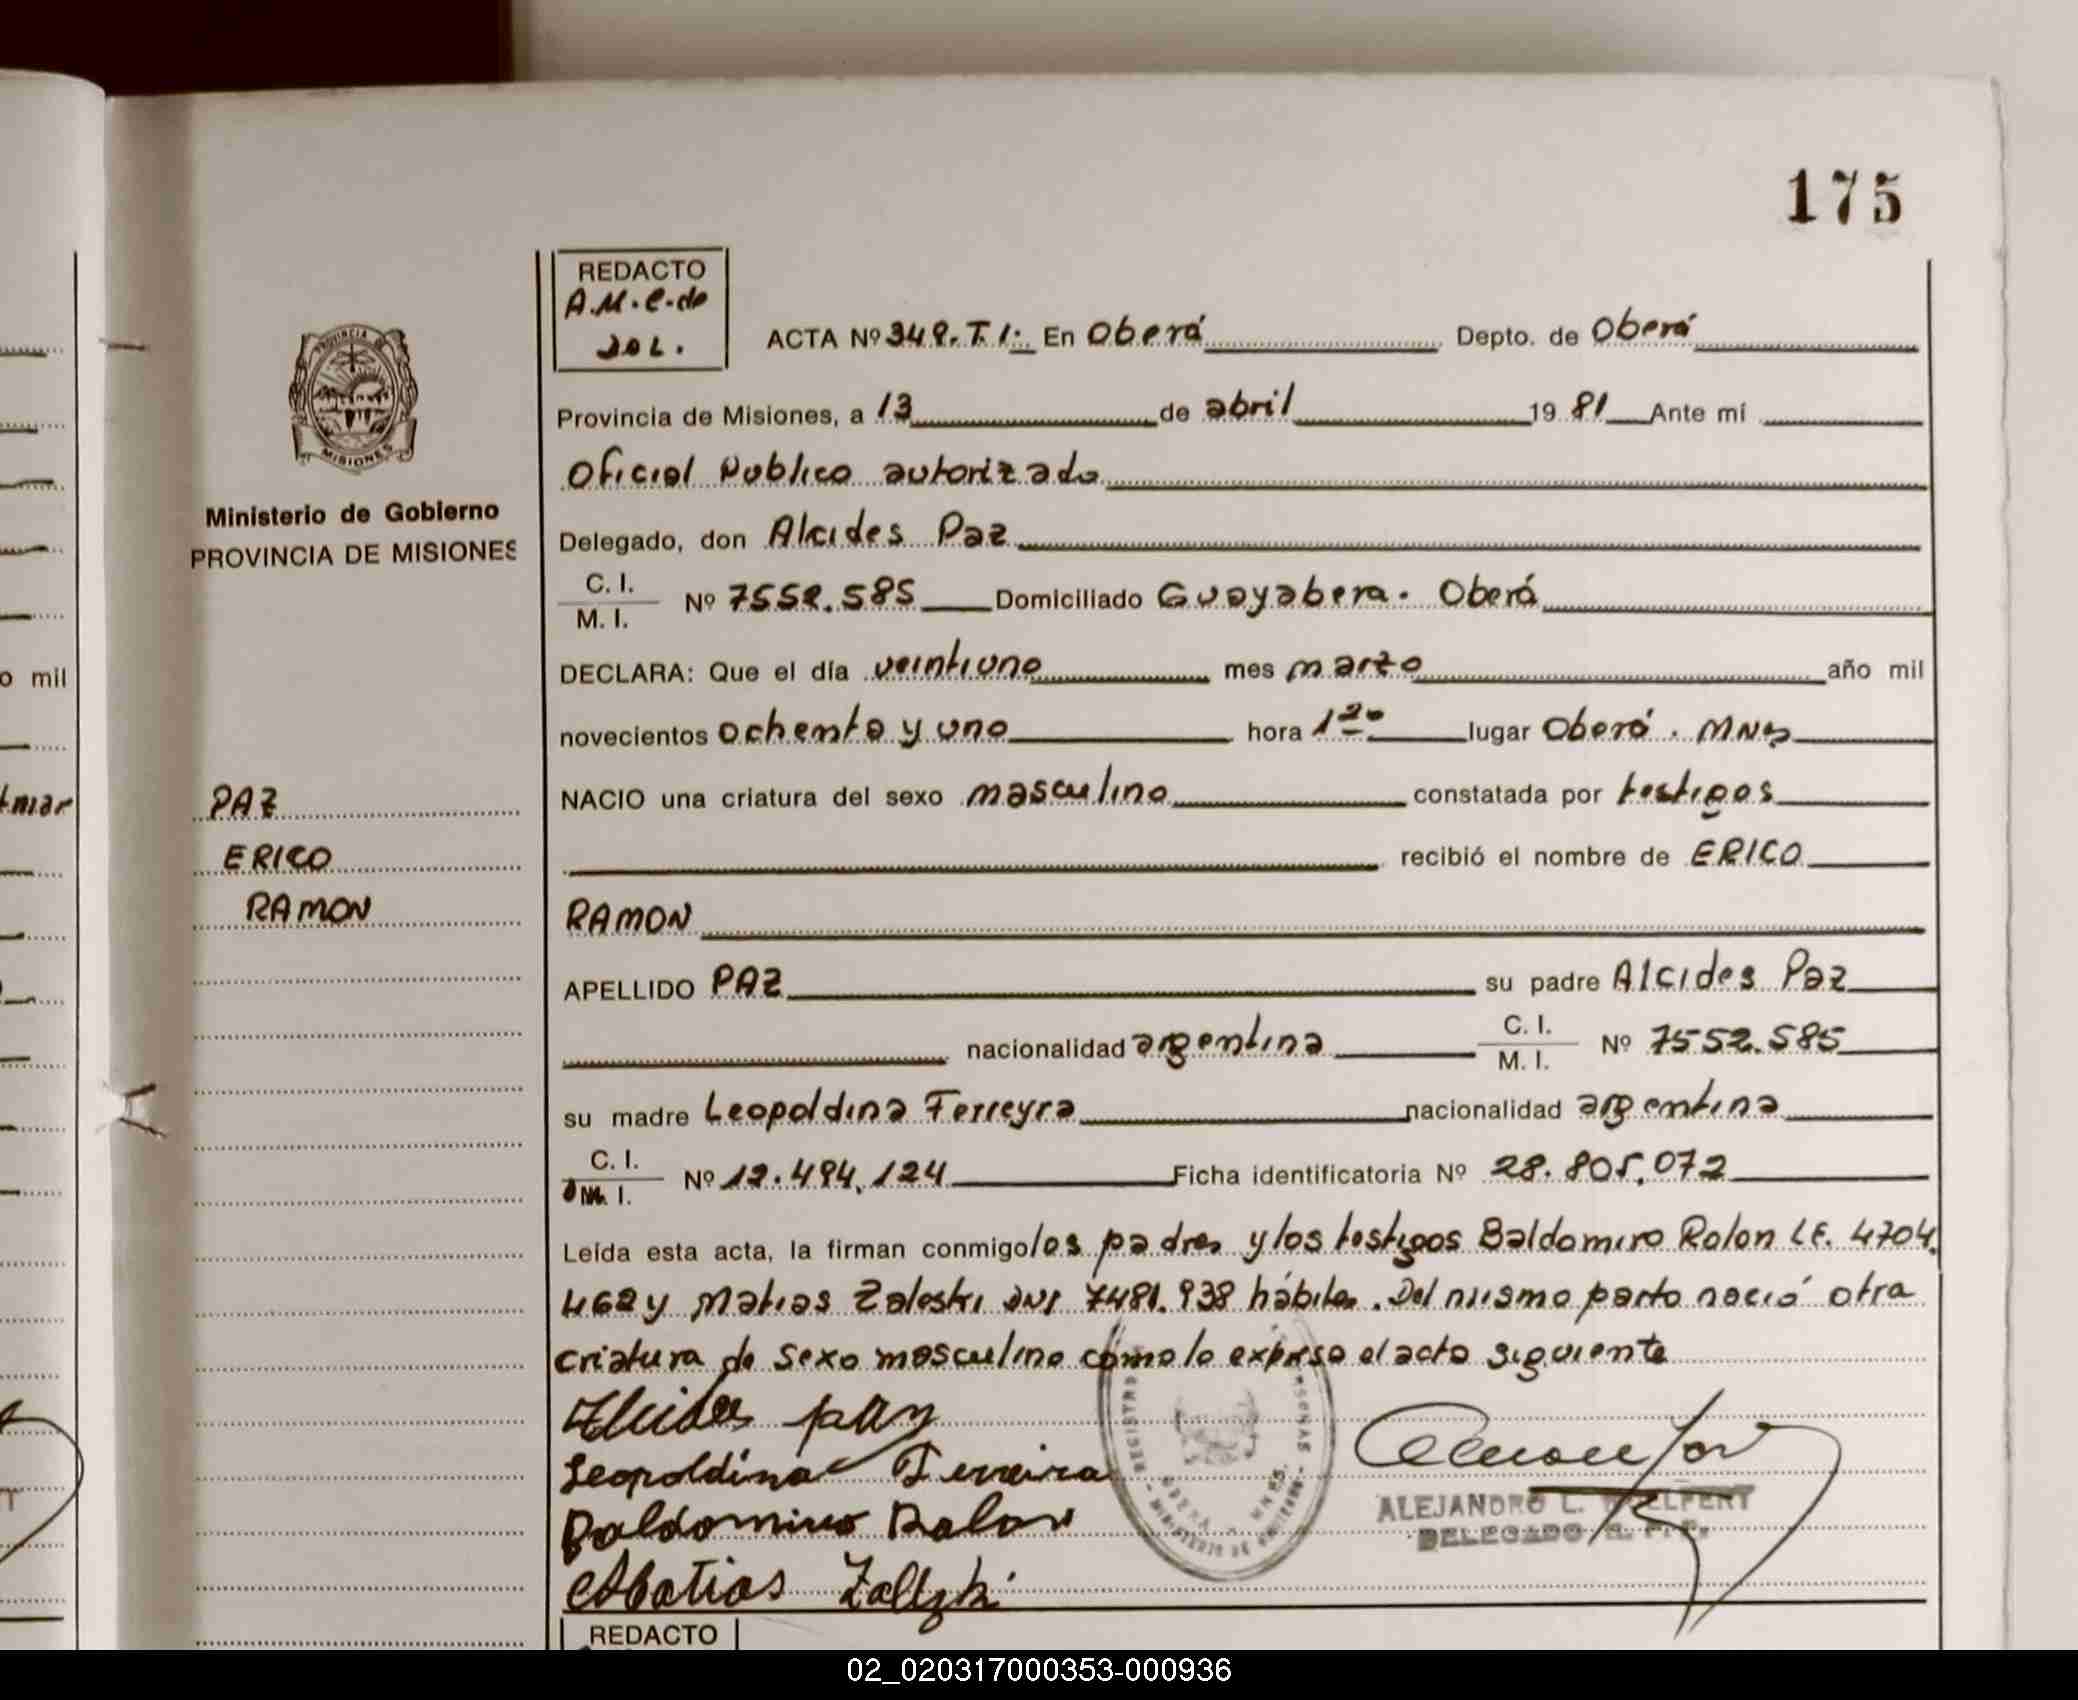 175
REDACTO
A.M.C. de
ACTA Nº 348. T. I. En Oberá Depto. de Oberá
Provincia de Misiones, a 13 de abril 19 81 Ante mí
Oficial Publico autorizado
Delegado, don Alcides Paz
C. I.
M. I. Nº 7552.585 Domiciliado Guayabera. Oberá
DECLARA: Que el día veintiuno mes marzo año mil
novecientos ochenta y uno hora 1 20 lugar Oberá. MNES
NACIO una criatura del sexo masculino constatada por testigos
recibió el nombre de ERICO
RAMON
APELLIDO PAZ su padre Alcides Paz
nacionalidad argentina C. I.
M. I. Nº 7552.585
su madre Leopoldina Ferreyra nacionalidad argentina
C. I.
M. I. Nº 12.494.124 Ficha identificatoria Nº 28.805.072
Leída esta acta, la firman conmigo los padres y los testigos Baldomiro Rolon LE. 4704.
462 y Matias Zaleski DNI 7481.938 hábiles. Del mismo parto nació otra
criatura de sexo masculino como lo expresa el acta siguiente
Alcides paz
Leopoldina Ferreira
Baldomiro Rolon
Matias
ALEJANDRO L. WOELFERT
DELEGADO R. P. P.
REDACTO
PROVINCIA DE
MISIONES
Ministerio de Gobierno
PROVINCIA DE MISIONES
PAZ
ERICO
RAMON
o mil
02_020317000353-000936